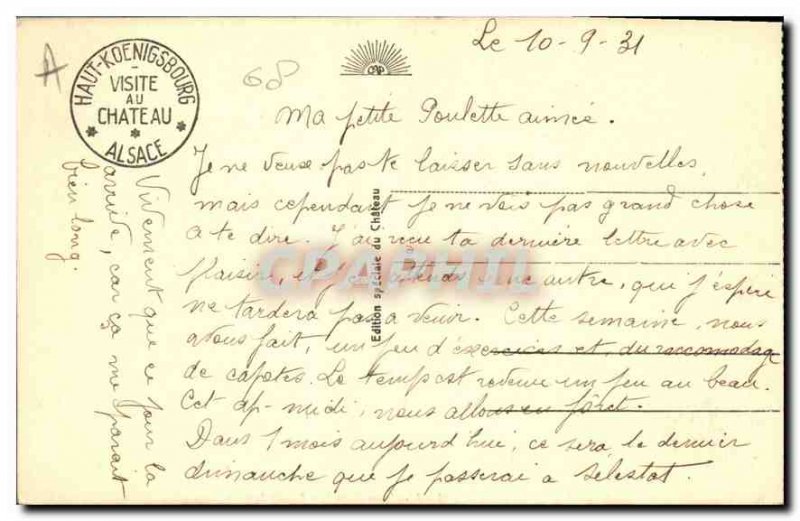 Le 10-9-31
68
A
HAUT-KOENIGSBOURG
VISITE
AU
CHATEAU
ALSACE
Ma petite Poulette aimée.
Je ne veux pas te laisser sans nouvelles
mais cependant je ne vois pas grand chose
a te dire. J'ai reçu ta dernière lettre avec
plaisir, et j'en attends une autre, qui j'espère
ne tardera pas a venir. Cette semaine, nous
avons fait, un peu d'exercices et du raccomodage
de capotes. Le temps est revenu un peu au beau.
Cet ap-midi, nous allons en fôret.
Dans 1 mois aujourd'hui, ce sera le dernier
dimanche que je passerai a Selestat.
Vivement que ce jour la
arrive, car ça me parait
bien long.
Edition spéciale du Château
CAP
CPAPHIL